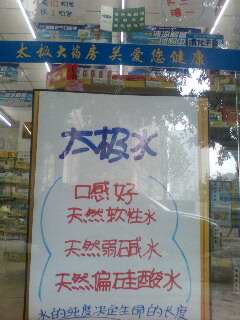 太极大药房关爱您健康
太极水
口感好
天然软性水
天然弱碱水
天然偏硅酸水
水的纯度决定生命的长度